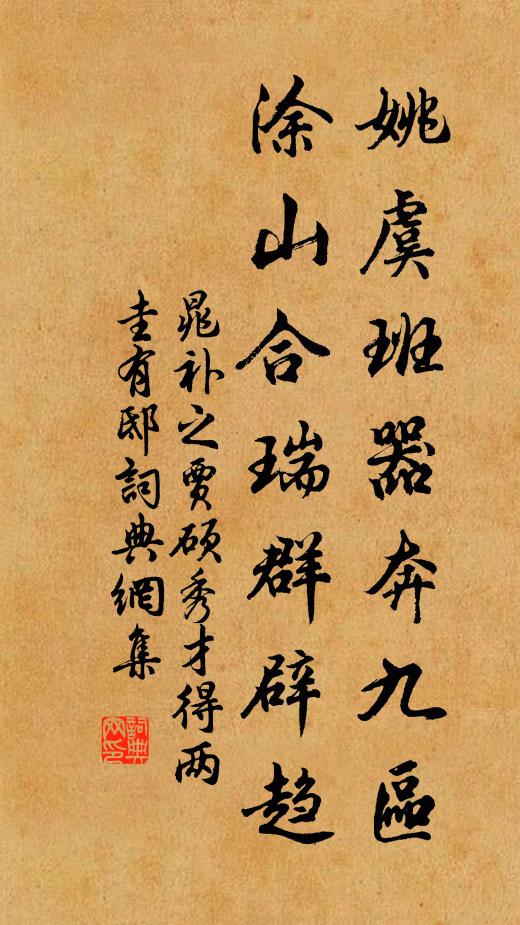 姚虞班器奔九區
涂山合瑞群辟趋
晁补之賈硕秀才得两
圭有邸詞典網集
詞典
网印